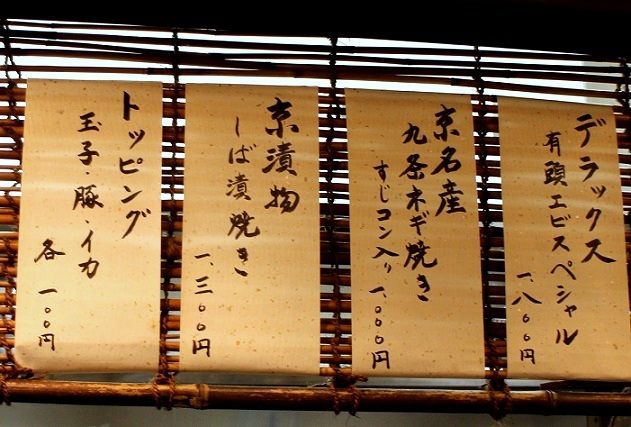 デラックス
有頭エビスペシャル
一、八〇〇円
京名産
九条ネギ焼き
すじコン入り 一、〇〇〇円
京漬物
しば漬焼き
一、三〇〇円
トッピング
玉子・豚・イカ
各 一〇〇円